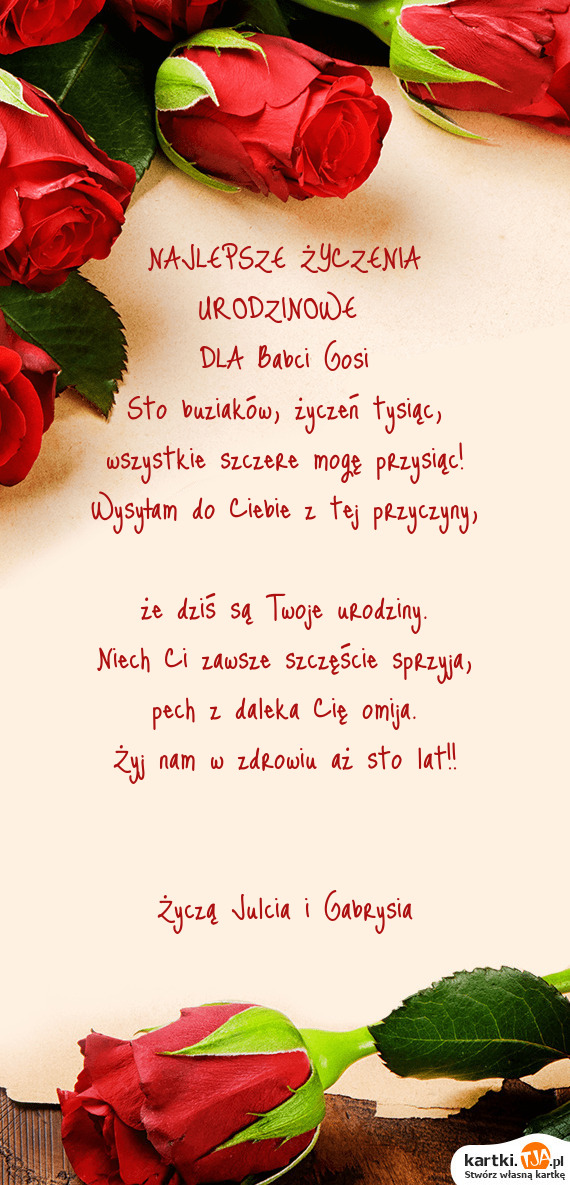 NAJLEPSZE ŻYCZENIA
URODZINOWE
DLA Babci Gosi
Sto buziaków, życzeń tysiąc,
wszystkie szczere mogę przysiąc!
Wysyłam do Ciebie z tej przyczyny,
że dziś są Twoje urodziny.
Niech Ci zawsze szczęście sprzyja,
pech z daleka Cię omija.
Żyj nam w zdrowiu aż sto lat!!
Życzą Julcia i Gabrysia
kartki.TJA.pl
Stwórz własną kartkę